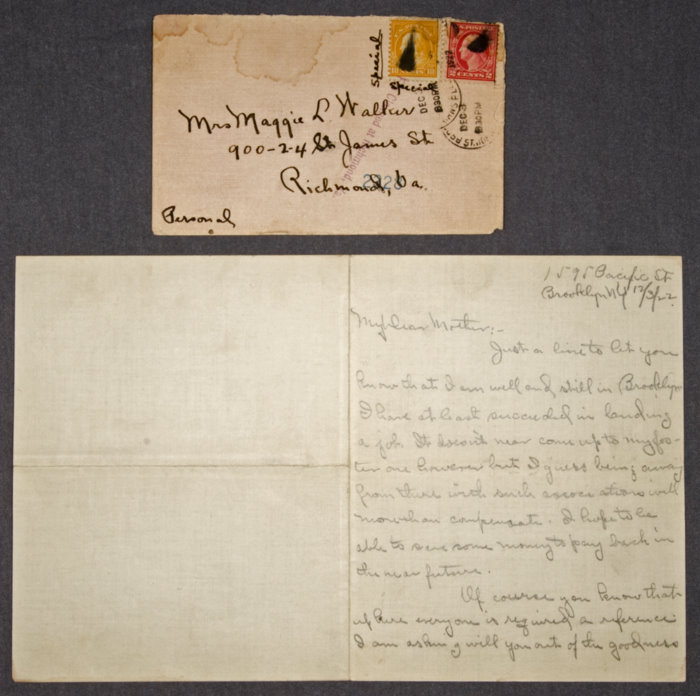 Special
Special
10 CENTS 10
2 CENTS 2
DEC 3
8 30 PM
DEC 3
8 30 PM
Mrs Maggie L Walker
900-2-4 St James St
Richmond, Va.
Personal
1595 Pacific St
Brooklyn NY 12/3/22
My dear Mother;-
Just a line to let you
know that I am well and still in Brooklyn
I have at last succeeded in landing
a job. It doesn't near come up to my fos-
ter one however but I guess being away
from there with such associations will
more than compensate. I hope to be
able to save some money to pay back in
the near future.
Of course you know that
up here everyone is required a reference
I am asking will you out of the goodness